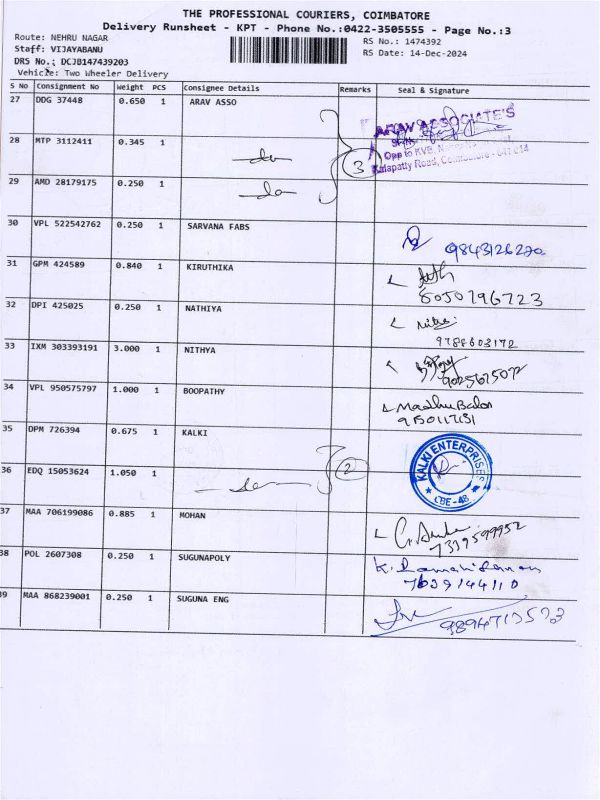 THE PROFESSIONAL COURIERS, COIMBATORE
Delivery Runsheet - KPT - Phone No.:0422-3505555 - Page No.:3
Route: NEHRU NAGAR RS No.: 1474392
Staff: VIJAYABANU RS Date: 14-Dec-2024
DRS No.: DCJB147439203
Vehicle: Two Wheeler Delivery
S No Consignment No Weight PCS Consignee Details Remarks Seal & Signature
27 DDG 37448 0.650 1 ARAV ASSO
ARAV ASSOCIATE'S
28 MTP 3112411 0.345 1 do 3
Opp to KVB,
Kalapatty Road, Coimbatore - 641 014
29 AMD 28179175 0.250 1 do
30 VPL 522542762 0.250 1 SARVANA FABS
9843126270
31 GPM 424589 0.840 1 KIRUTHIKA
8050796723
32 DPI 425025 0.250 1 NATHIYA
9788603172
33 IXM 303393191 3.000 1 NITHYA
9025615072
34 VPL 950575797 1.000 1 BOOPATHY MadhuBalan
9150117131
35 DPM 726394 0.675 1 KALKI
KALKI ENTERPRISES
CBE-48
36 EDQ 15053624 1.050 1 do 2
37 MAA 706199086 0.885 1 MOHAN
7339599952
38 POL 2607308 0.250 1 SUGUNAPOLY
39 MAA 868239001 0.250 1 SUGUNA ENG